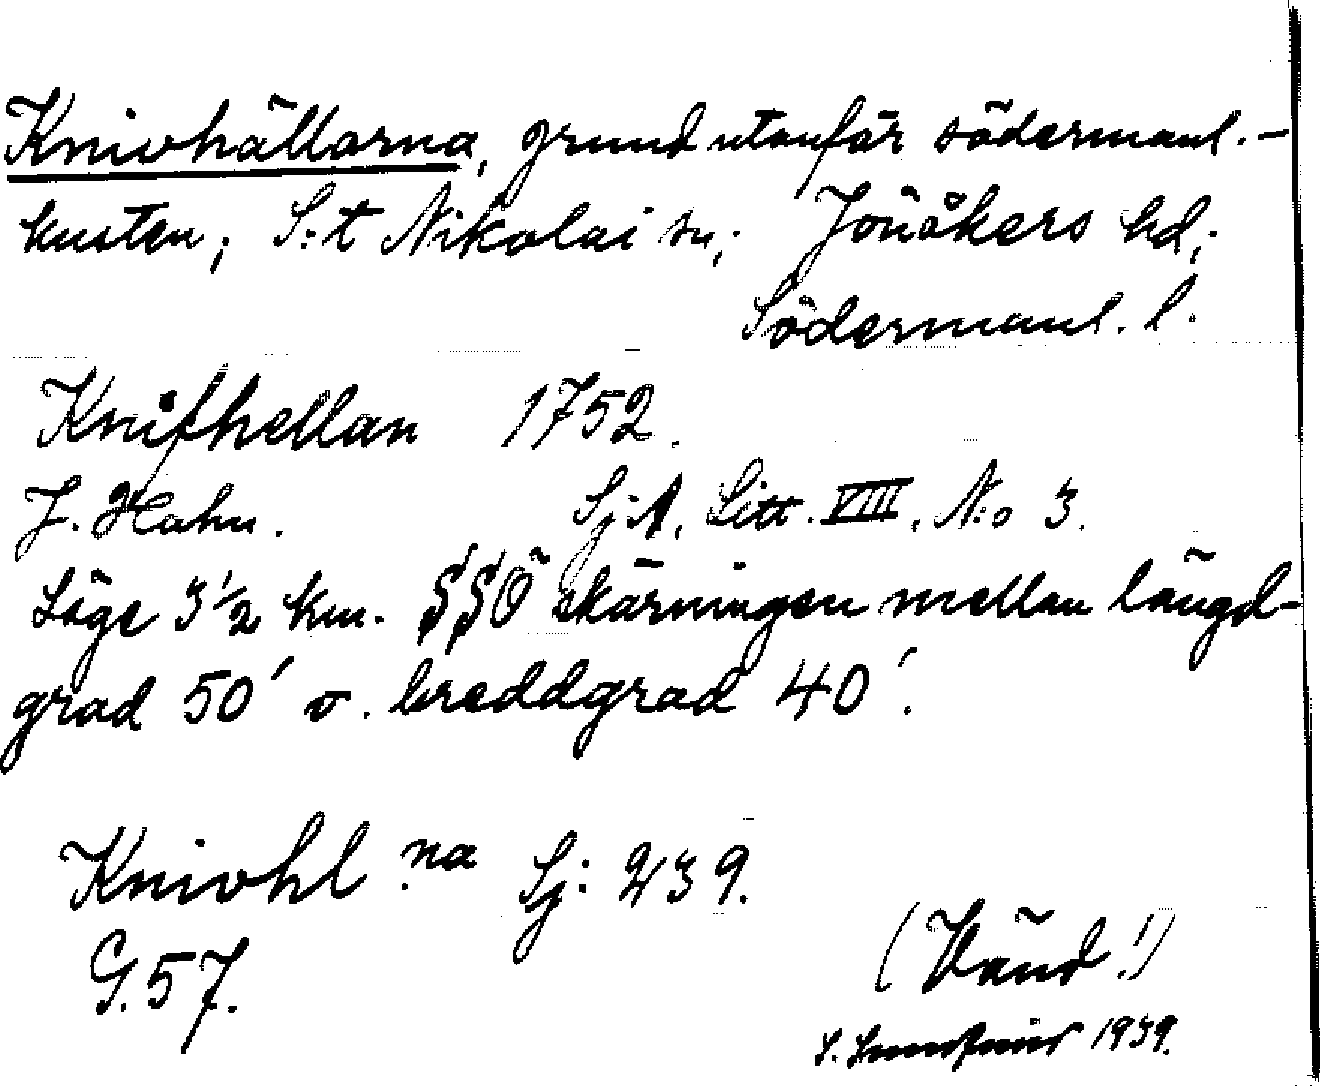 Knivhällarna, grund utanför södermanl.-
kusten, S:t Nikolai sn, Jönåkers hd,
Södermanl. l.
Knifhellan 1752.
J. Hahn. SjA. Litt. VIII. N:o 3.
Läge 3 1/2 km. SSÖ skärningen mellan längd-
grad 50' o. breddgrad 40'.
Knivhl na Sj: 239.
G. 57.
(Vänd!)
1939.